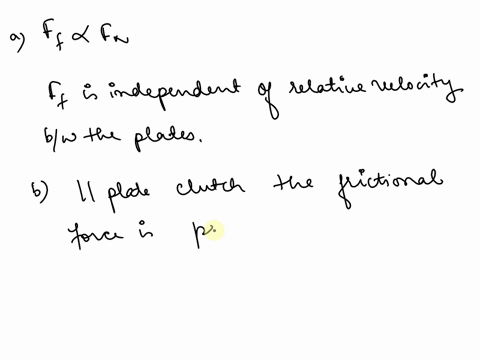 a) F_f ∝ F_N
F_f is independent of relative velocity
b/w the plates.
b) || plate clutch the frictional
force is p